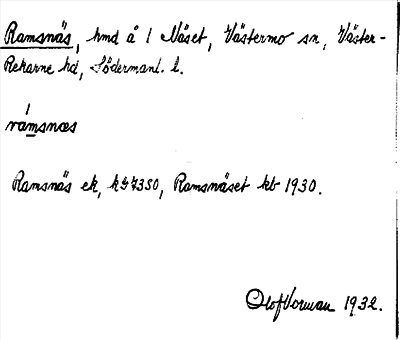 Ramsnäs, hmd å 1 Näset, Västermo sn, Väster-
Rekarne hd, Södermanl. l.
ramsnæs
Ramsnäs ek, Ramsnäset kb 1930.
Olof Vorman 1932.